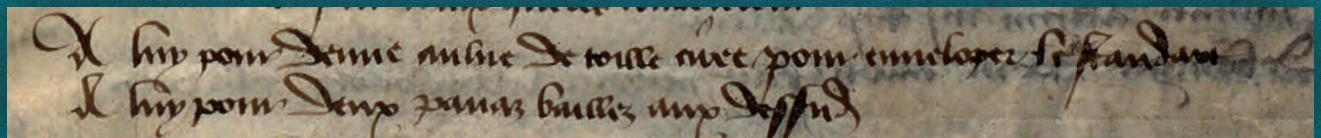 A luy pour demie aulne de toille ciree pour enveloper le standart
A luy pour deux pavaz baillez aux dessusd